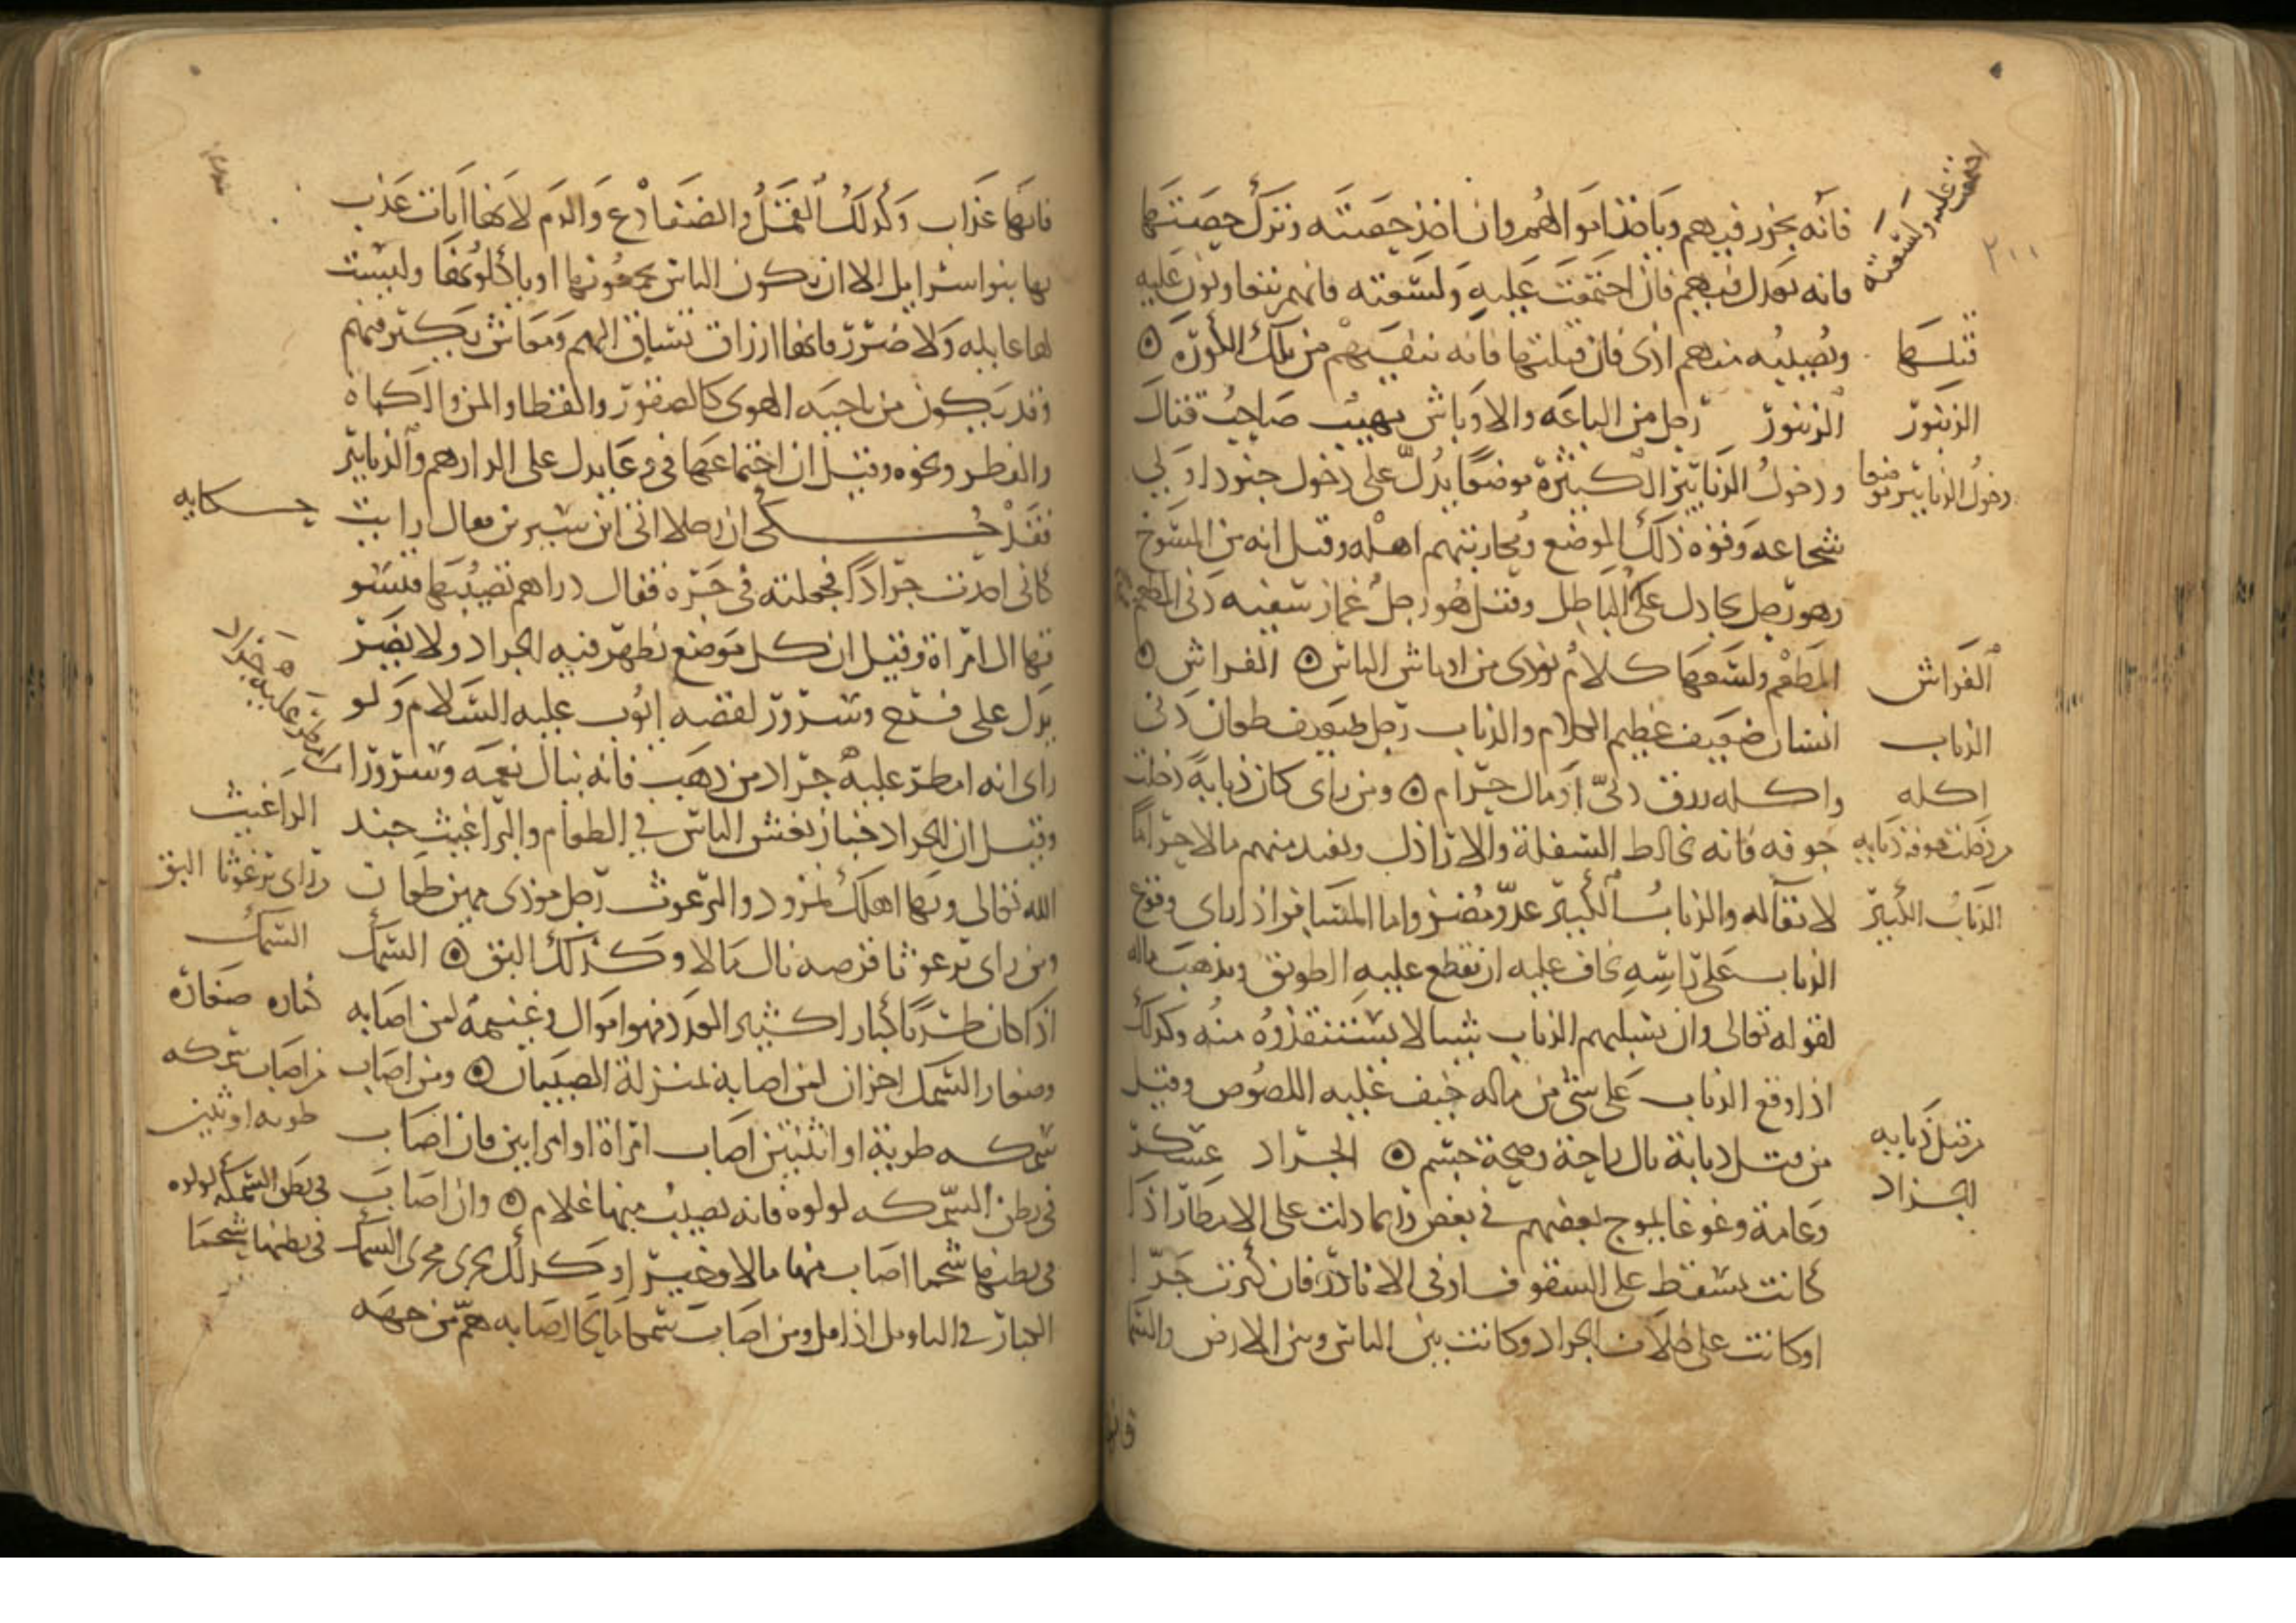 فانه يجور فيهم وياخذ اموالهم وان اخذ حصته وترك حصتها
فانه يعدل فيهم فان اجتمعت عليه ولسعته فانهم يتعاونون عليه
ويصيبه منهم اذى فان قتلها فانه ينفيهم من تلك الكورة
الزنبور رجل من الباعه والاوباش مهيب صاحب قتال
ودخول الزنابير الكثيرة موضعا يدل على دخول جنود اولي
شجاعه وقوه ذلك الموضع ومحاربتهم اهله وقيل انه من المسوخ
وهو رجل يجادل على الباطل وقيل هو رجل غماز سفيه دني المطعم
المطعم ولسعها كلام يؤدى من اوباش الناس الفراش
انسان ضعيف عظيم الكلام والذباب رجل ضعيف طعان دنى
واكله رزق دنى او مال حرام ومن راى كان ذبابة دخلت
جوفه فانه يخالط السفلة والاراذل ويفيد منهم مالا حراما
لا بقاله والذباب الكبير عدو مضر واما المسافر اذا راى وقوع
الذباب على راسه يخاف عليه ان يقطع عليه الطريق ويذهب ماله
لقوله تعالى وان يسلبهم الذباب شيا لا يستنقذوه منه وكذلك
اذا وقع الذباب على شى من ماله خيف عليه اللصوص وقيل
من قتل ذبابة نال راحة وصحة جسم الجراد عسكر
وعامة وغوغا يموج بعضهم في بعض وربما دلت على الامطار اذا
كانت تسقط على السقوف او فى الانادر فان كثرت جدا
او كانت على خلاف الجراد وكانت بين الناس وبين الارض والسما
عليه ولسعته
قتلها
الزنبور
دخول الزنابير موضعا
الفراش
الذباب
اكله
من دخلت جوفه ذبابه
الذباب الكبير
من قتل ذبابه
الجراد
٢١١
فانها عذاب وكذلك القمل والضفادع والدم لانها ايات عذب
بها بنوا اسرايل الا ان تكون الناس يجمعونها او ياكلونها وليست
لها غايله ولا ضرر فانها ارزاق تساق اليهم ومعاش يكثر فيهم
وقد يكون من ناحيه الهوى كالعصفور والقطا والمن والكماه
والفطر ونحوه وقيل ان اجتماعها فى وعا يدل على الدراهم والدنانير
فقد حكى ان رجلا اتى ابن سيرين فقال رايت
كانى اخذت جرادا فجعلته فى جرة فقال دراهم تصيبها فتسو
قها الى امراة وقيل ان كل موضع يظهر فيه الجراد ولا يضر
يدل على فرح وسرور لقصه ايوب عليه السلام ولو
راى انه امطر عليه جراد من ذهب فانه ينال نعمه وسرورا
وقيل ان الجراد خباز يغش الناس في الطعام والبراغيث جند
الله تعالى وبها اهلك نمرود والبرغوث رجل موذى مهين طعان
ومن راى برغوثا قرصه نال مالا وكذلك البق السمك
اذا كان طريا كبارا كثير العدد فهو اموال وغنيمة لمن اصابه
وصغار السمك احزان لمن اصابه بمنزلة الصبيان ومن اصاب
سمكه طرية او اثنتين اصاب امراة او امراتين فان اصاب
فى بطن السمكه لولوه فانه يصيب منها غلام وان اصاب
فى بطنها شحما اصاب منها مالا وخيرا وكذلك يجرى مجرى السمك
الجبار في التاويل اذا امل ومن اصاب سمكا مالحا اصابه هم من جهه
حكايه
امطر عليه جراد
البراغيث
راى برغوثا البق
السمك
كباره صغاره
من اصاب سمكه
طريه او ثنين
فى بطن السمكه لولوه
فى بطنها شحما